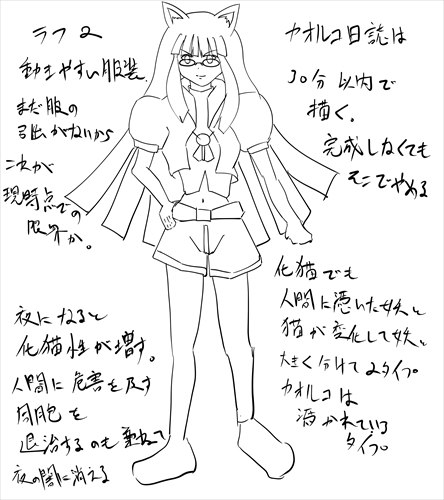 ラフ2
動きやすい服装、
まだ服の
引出がないから
これが
現時点での
限界か。
カオルコ日誌は
30分以内で
描く。
完成しなくても
そこでやめる
化猫でも
人間に憑いた妖と
猫が変化して妖と
大きく分けて2タイプ。
カオルコは
憑かれている
タイプ。
夜になると
化猫性が増す。
人間に危害を及す
同胞を
退治するのも兼ねて
夜の闇に消える